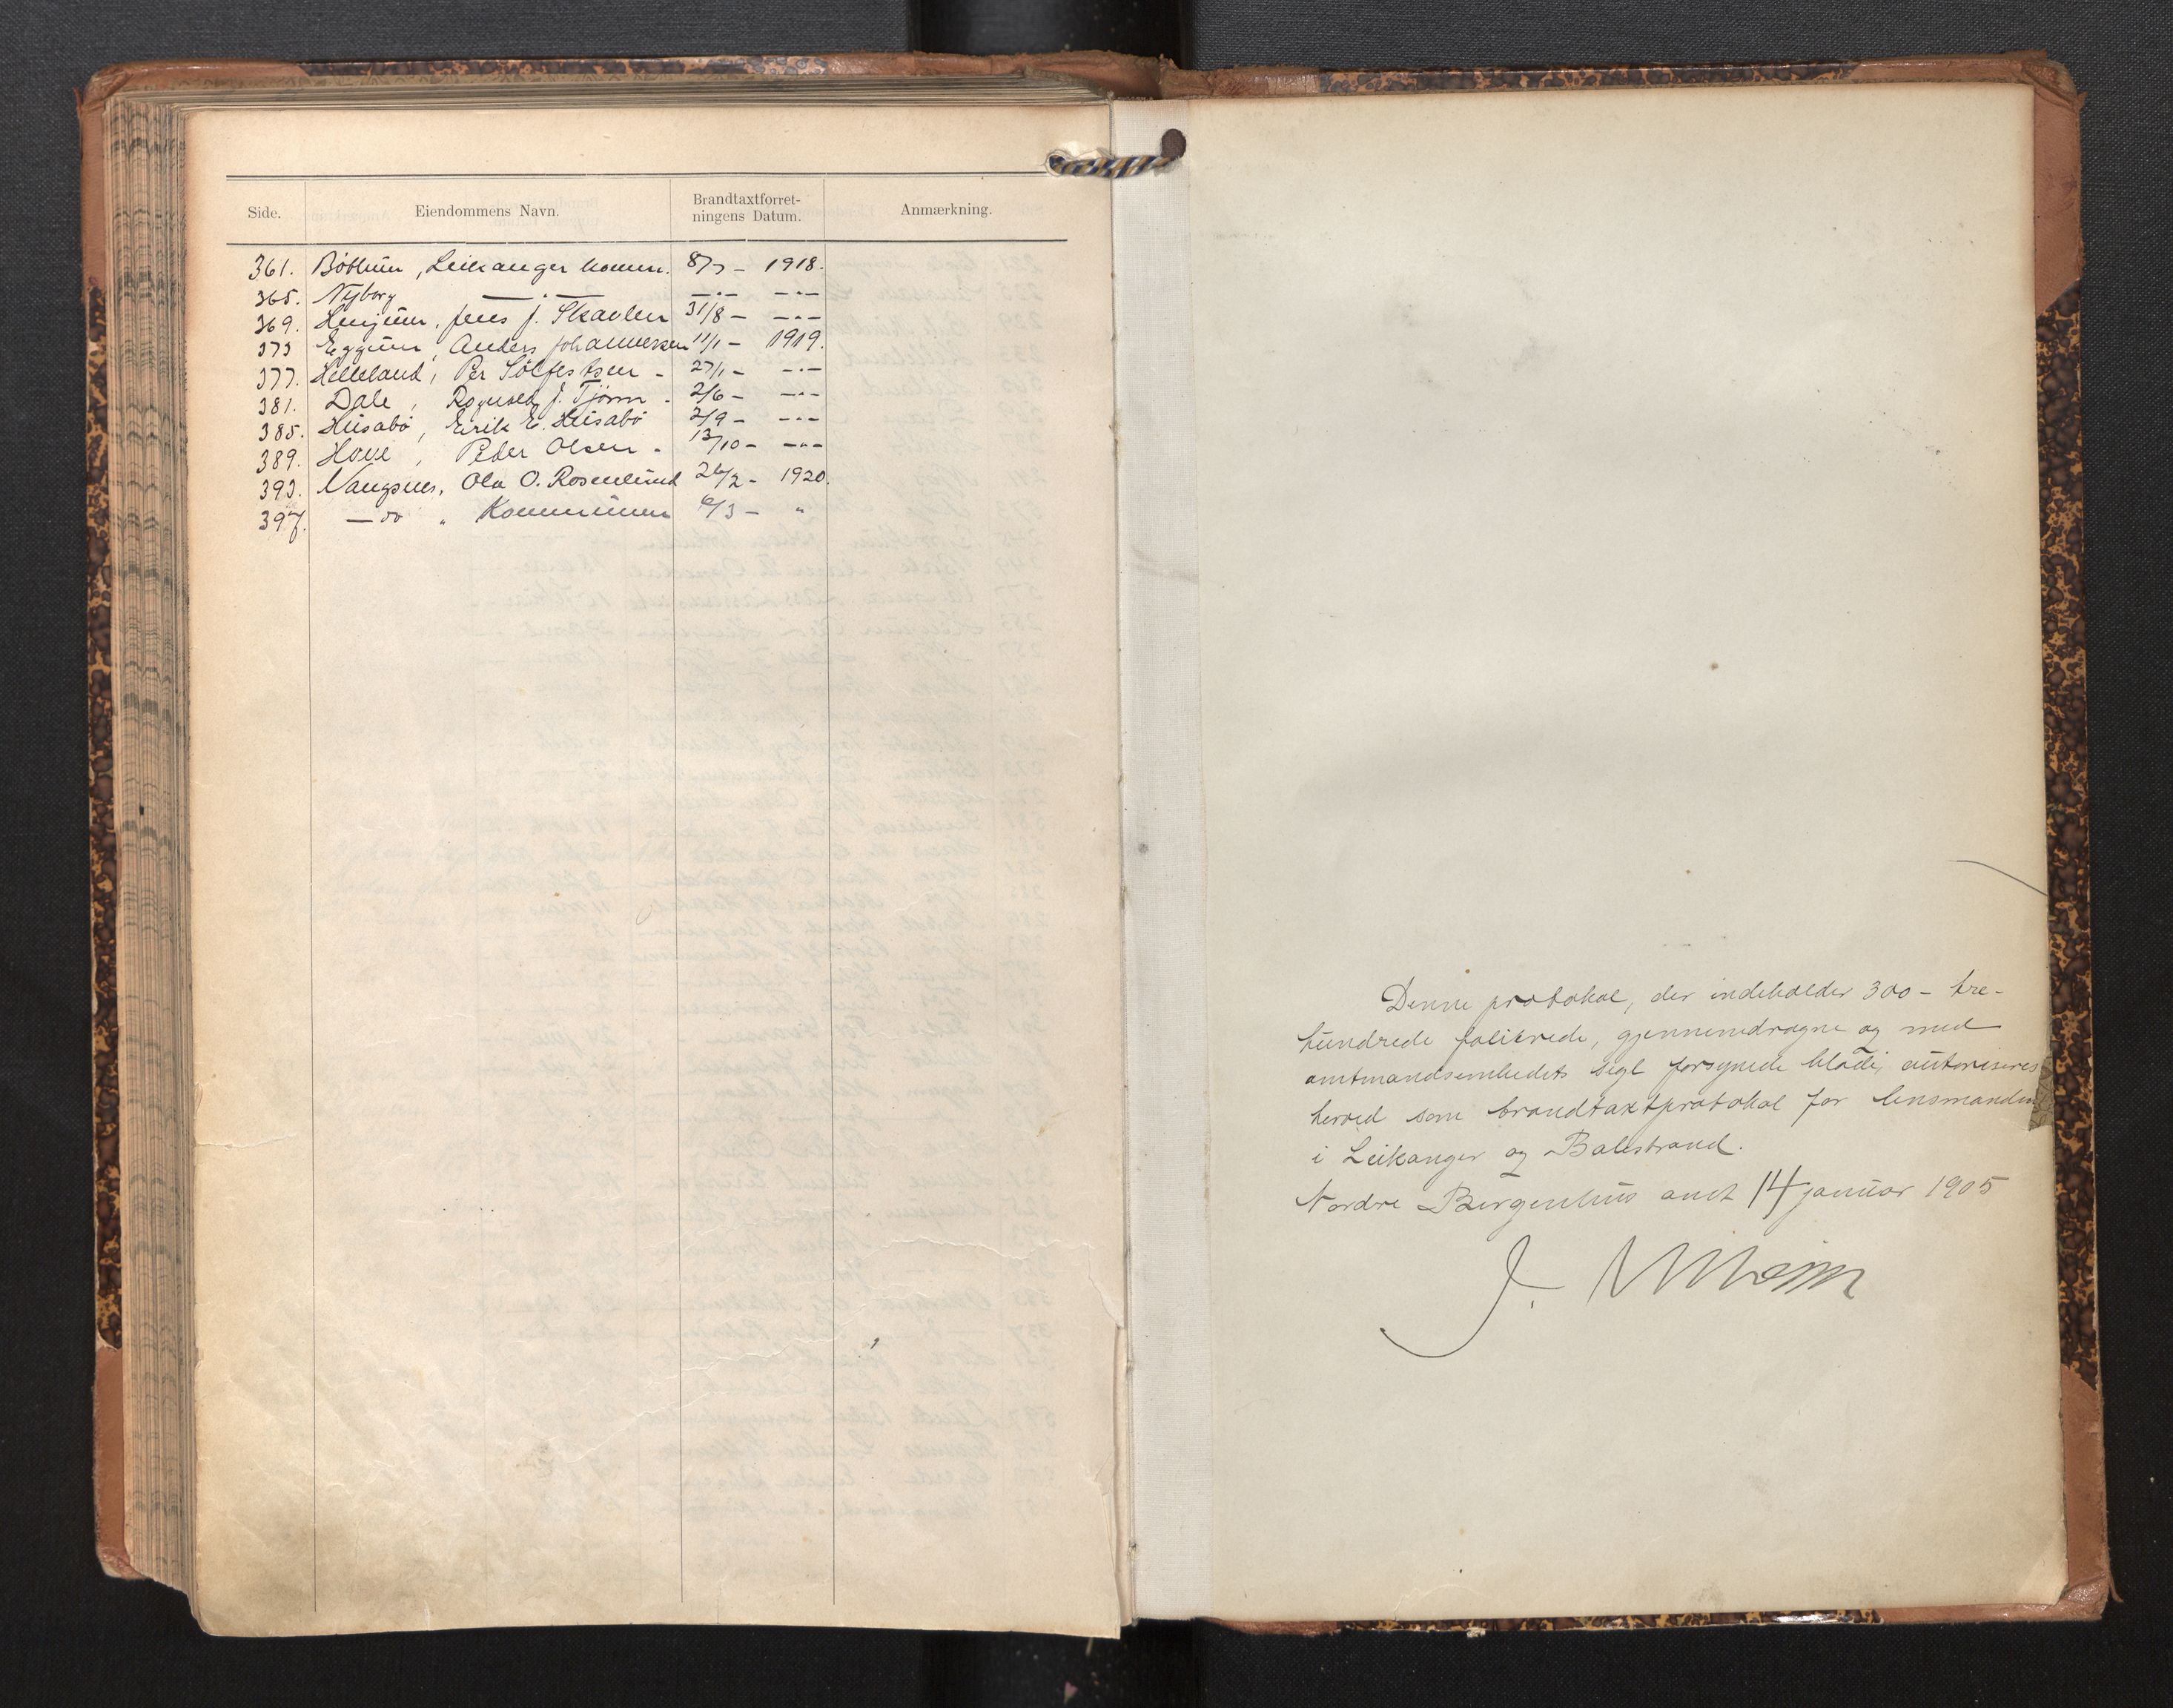 Side. Eiendommens Navn. Brandtaxtforret-
ningens Datum. Anmærkning.
361. Böthun, Leikanger komm. 8/7 - 1918.
365. Nyborg —"— —"— —"—
369. Henjum, Jens J. Skavlen 31/8 - —"—
373 Eggum, Anders Johannesen 11/1 - 1919.
377. Helleland, Per Sölfestsen - 27/1 - —"—
381. Dale, J. Tjönn - 2/6 - —"—
385. Husabö, Eirik E. Husabö 2/9 - —"—
389. Hove, Peder Olsen - 13/10 - —"—
393. Vangsnes, Ola O. Rosenlund 26/2 - 1920.
397. —do " Kommunen 6/3 - "
Denne protokol, der indeholder 300 - tre-
hundrede folierede, gjennemdragne og med
amtmandsembedets segl forsynede blade, autoriseres
herved som brandtaxtprotokol for lensmanden
i Leikanger og Balestrand.
Nordre Bergenhus amt 14 januar 1905
J.